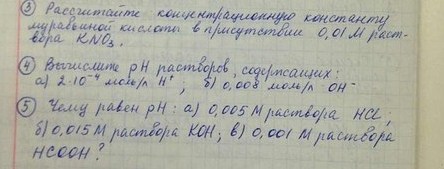 ③ Рассчитайте концентрационную константу
муравьиной кислоты в присутствии 0,01 М раст-
вора KNO₃.
④ Вычислите pH растворов, содержащих:
а) 2·10⁻⁴ моль/л H⁺, б) 0,008 моль/л OH⁻
⑤ Чему равен pH: а) 0,005 М раствора HCl;
б) 0,015 М раствора KOH; в) 0,001 М раствора
HCOOH?